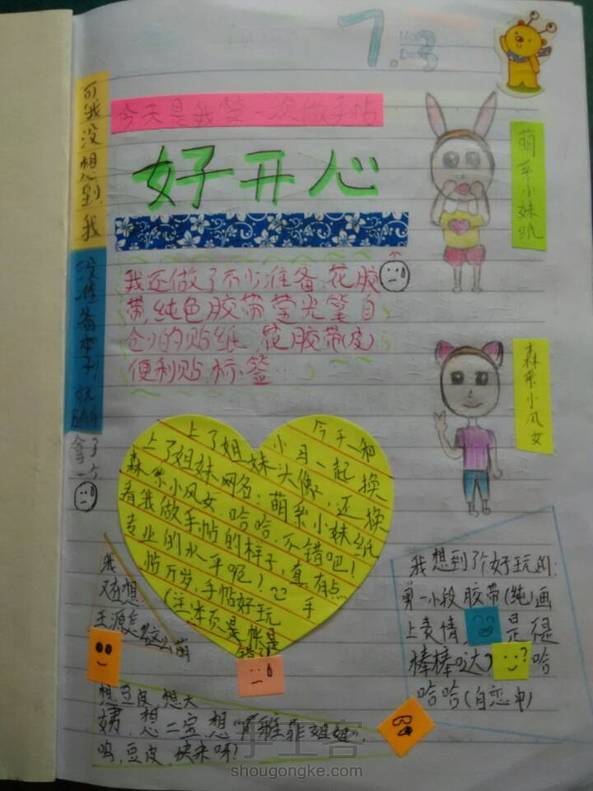 7.3
今天是我第一次做手帖
好开心
可我没想到,我
没准备本子!就随便
拿了一个
我还做了不少准备,花胶
带,纯色胶带荧光笔自
创的贴纸 花胶带皮
便利贴.标签…
萌系小妹纸
森系小风女
今天和
小月一起换
上了姐妹头像,还换
上了姐妹网名:萌系小妹纸
森系小风女,哈哈,不错吧!
看我做手帖的样子,真有点
专业的水平呢!
帖万岁,手帖好玩
我
又在想
我想到了个好玩的:
剪一小段胶带(纯)画
上表情
是很
棒棒哒
哈
哈哈(自恋中)
想豆皮,想大
姨,想二宝,想
姐姐",
呜,豆皮,快来呀!
手工客
shougongke.com